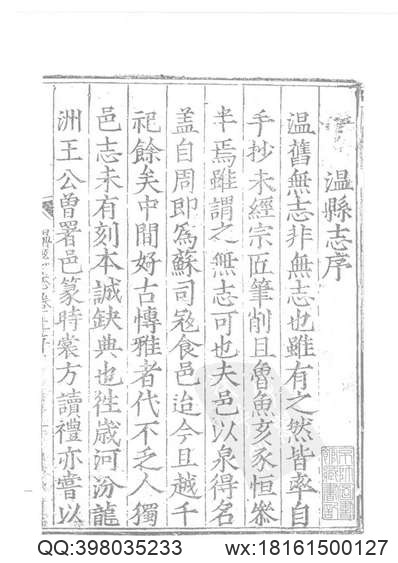 溫縣志序
溫舊無志非無志也雖有之然皆率自
手抄未經宗匠筆削且魯魚亥豕恒叅
半焉雖謂之無志可也夫邑以泉得名
盖自周即為蘇司寇食邑迨今且越千
祀餘矣中間好古慱雅者代不乏人獨
邑志未有刻本誠缺典也徃歲河汾龍
洲王公曽署邑篆時裳方讀禮亦嘗以
QQ:398035233
wx:18161500127